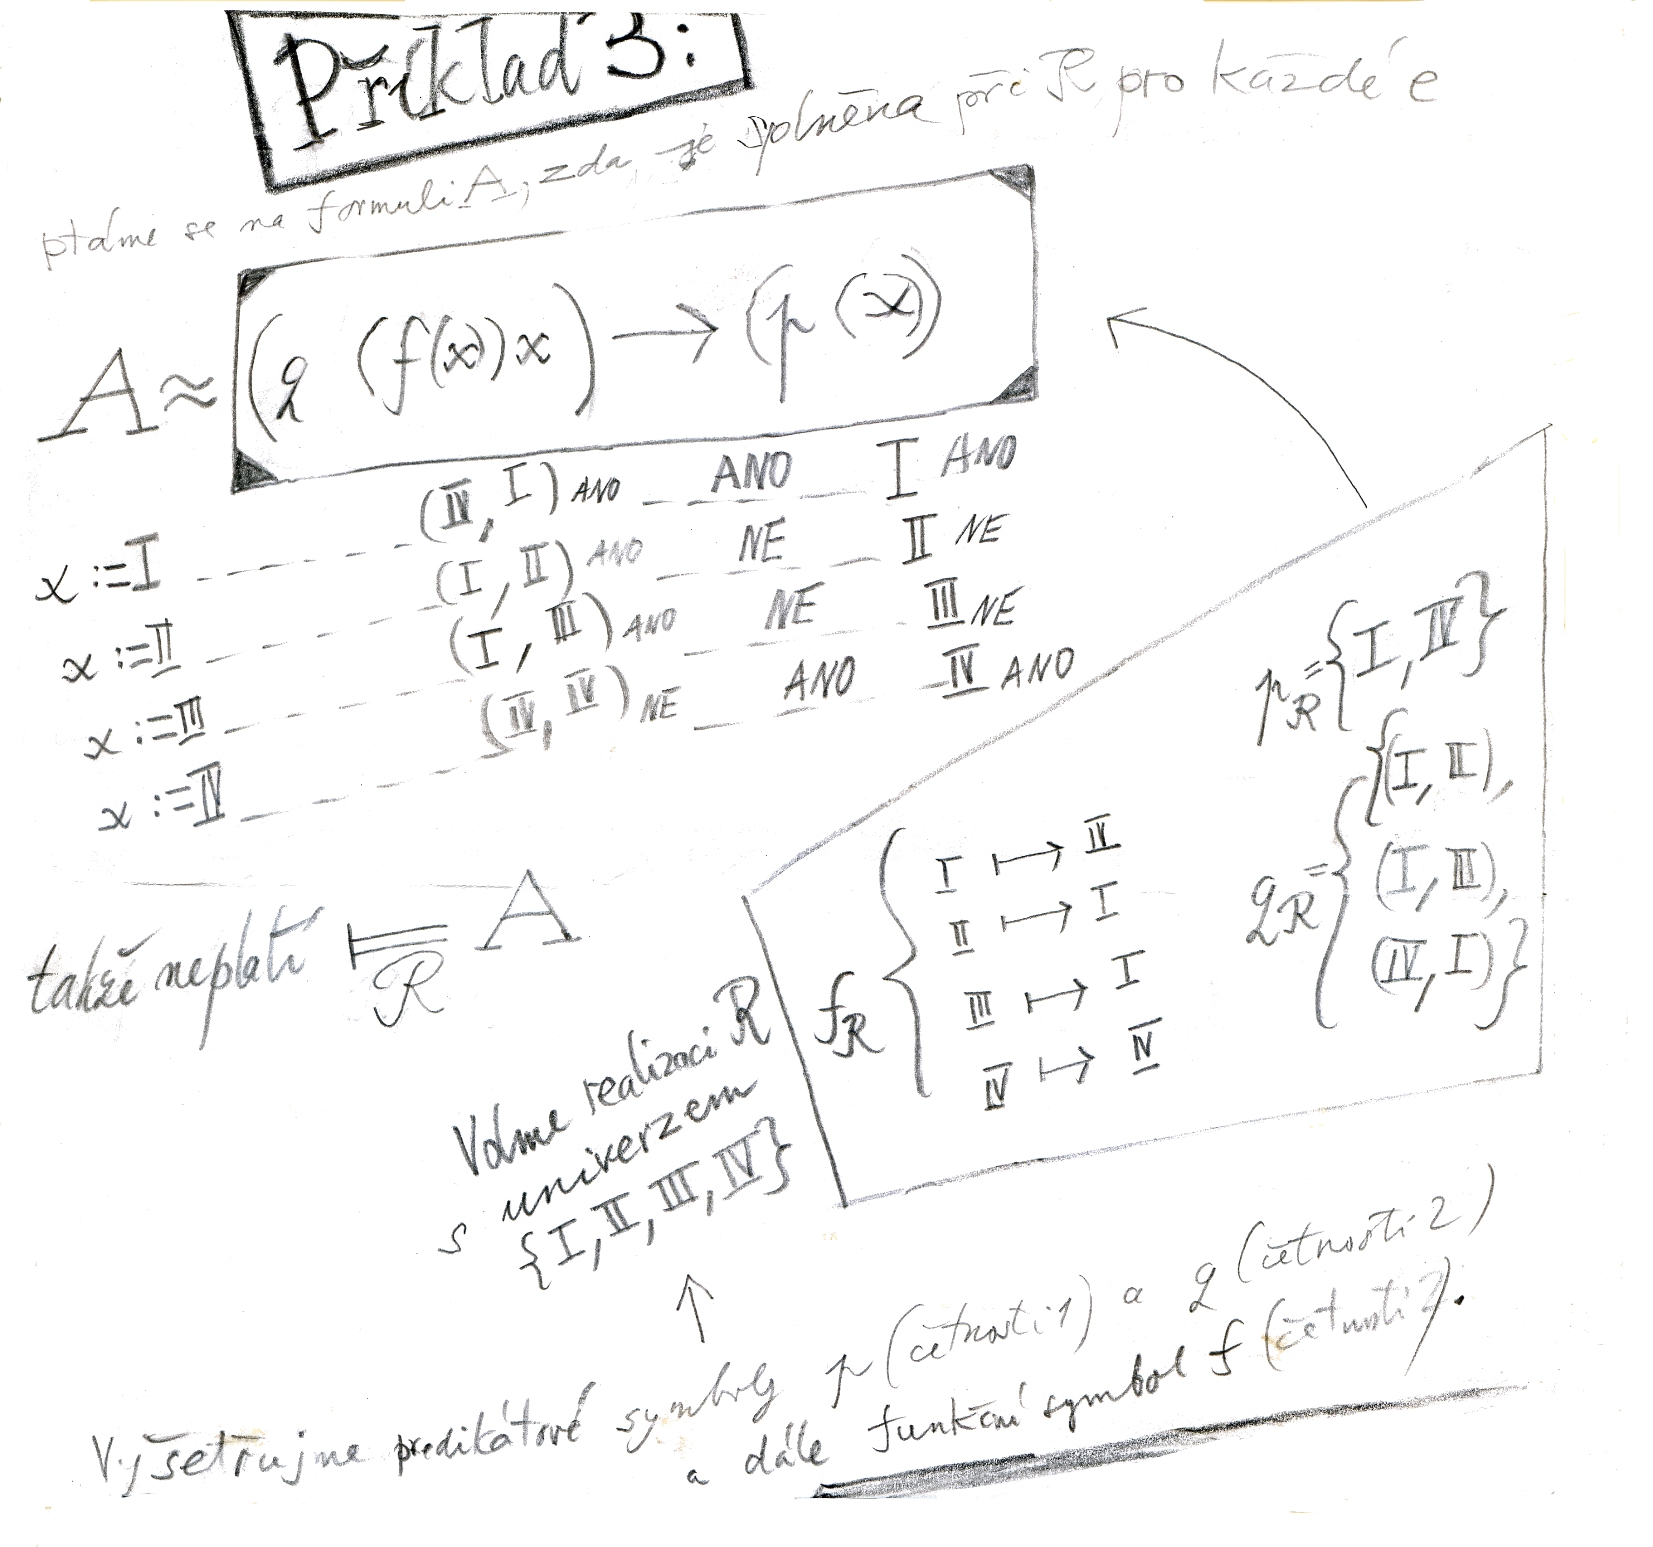 Příklad 3:
ptáme se na formuli A, zda je splněna při R pro každé e
A ≈ (q (f(x))x) → (p (x))
x := I (IV, I) ANO ANO I ANO
x := II (I, II) ANO NE II NE
x := III (I, III) ANO NE III NE
x := IV (IV, IV) NE ANO IV ANO
takže neplatí ⊨ A
R
p_R = {I, IV}
q_R = {(I, II),
(I, III),
(IV, I)}
f_R { I ↦ IV
II ↦ I
III ↦ I
IV ↦ IV
Volme realizaci R
s univerzem
{I, II, III, IV}
↑
Vyšetřujme predikátové symboly p (četnosti 1) a q (četnosti 2)
a dále funkční symbol f (četnosti).